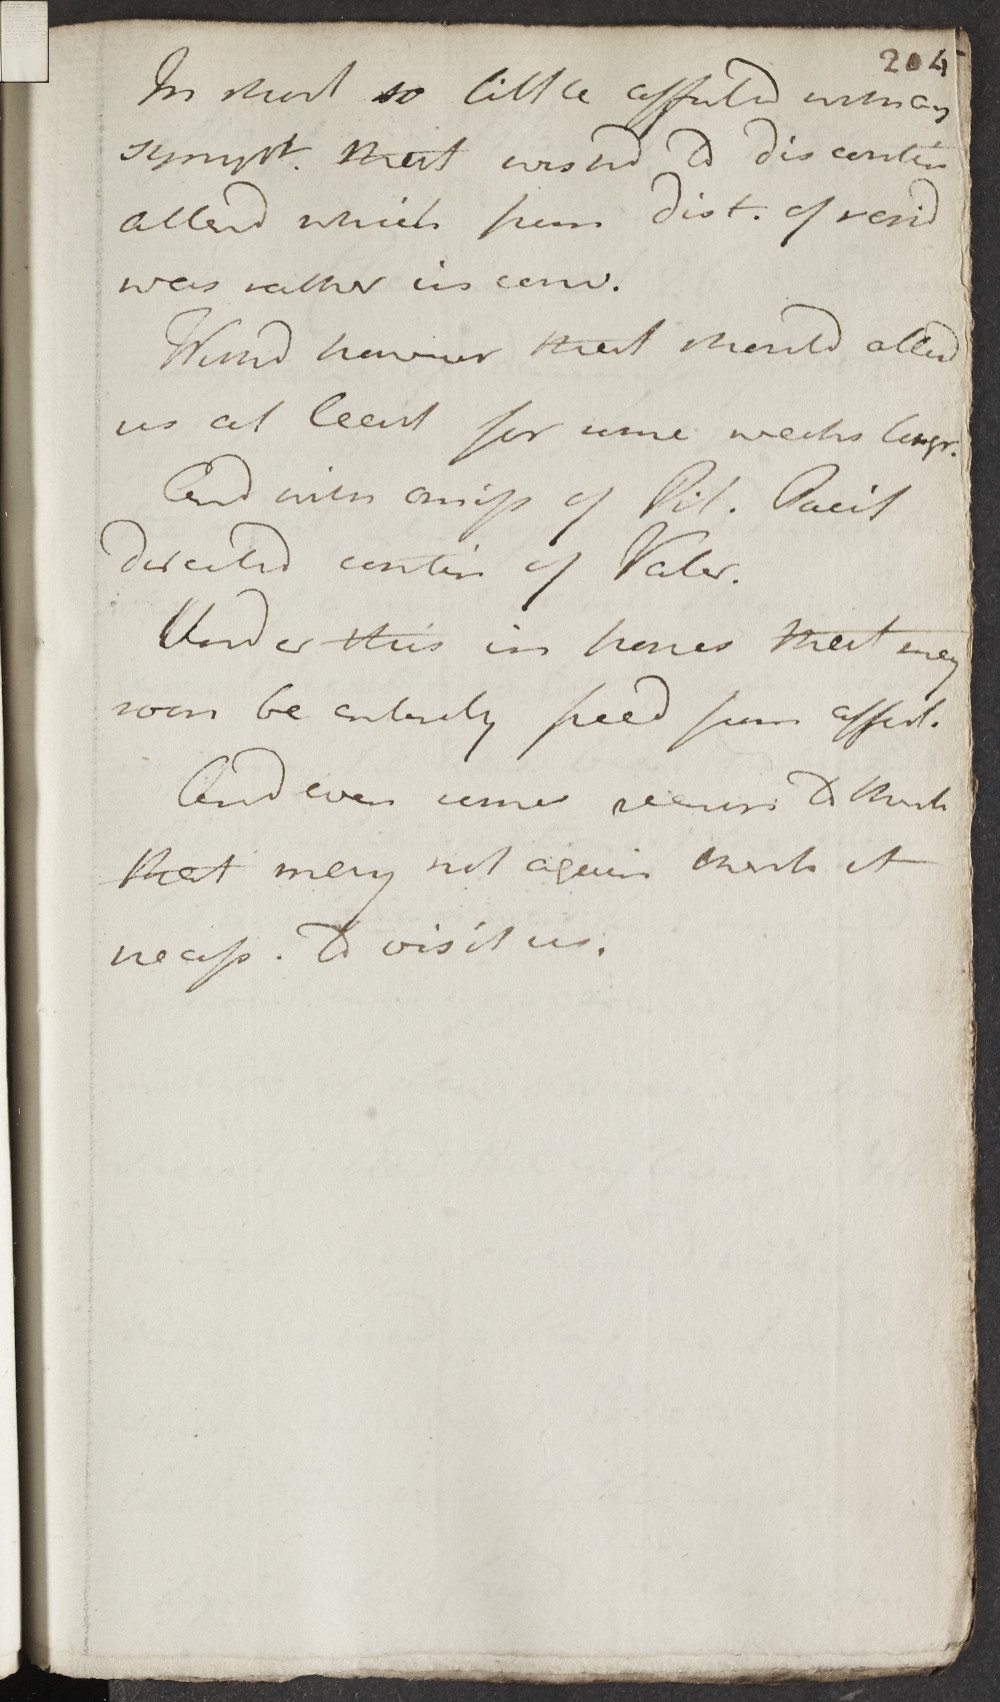 204
In short so little affected with any
sympt. that wishd to discontin
attend which from dist. of resid
was rather inconv.
Wishd however that should attend
us at least for some weeks longr.
And with omiss of Pil. Pacif
directed contin of Valer.
Under this in hopes that may
soon be entirely freed from affect.
And even some reason to think
that may not again think it
necess. to visit us.